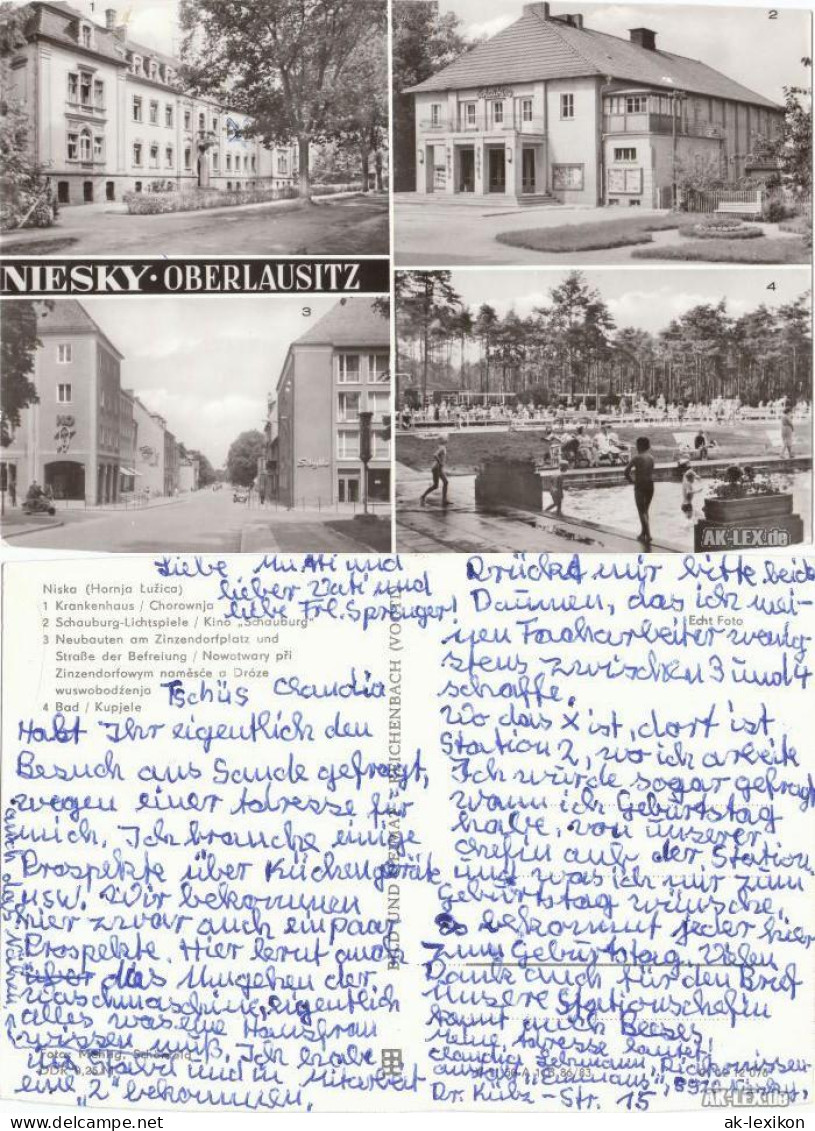 1
2
Schauburg
NIESKY · OBERLAUSITZ
3
4
AK-LEX.de
Niska (Hornja Łužica)
1 Krankenhaus / Chorownja
2 Schauburg-Lichtspiele / Kino „Schauburg"
3 Neubauten am Zinzendorfplatz und
Straße der Befreiung / Nowotwary při
Zinzendorfowym naměsće a Dróze
wuswobodźenja
4 Bad / Kupjele
Liebe Mutti und
lieber Vati und
liebe Frl. Sprenger!
Tschüs Claudia
Habt Ihr eigentlich den
Besuch aus Sande gefragt,
wegen einer Adresse für
mich. Ich brauche einige
Prospekte über Küchengeräte
usw. Wir bekommen
hier zwar auch ein paar
Prospekte. Hier lernt man
das Umgehen der
Waschmaschine, eigentlich
alles was eine Hausfrau
wissen muß. Ich habe
und in Mitarbeit
eine "2" bekommen,
auch das Nähen,
DDR 0,25 M
BILD UND HEIMAT REICHENBACH (VOGTL)
Echt Foto
Drückt mir bitte beide
Daumen, das ich mei-
nen Facharbeiter wenig-
stens zwischen 3 und 4
schaffe.
Wo das X ist, dort ist
Station 2, wo ich arbeite
Ich wurde sogar gefragt
wann ich Geburtstag
habe, von unserer
Chefin auf der Station
und was ich mir zum
Geburtstag wünsche.
Es bekommt jeder hier
zum Geburtstag. Vielen
Dank auch für den Brief
Unsere Stationschefin
kommt auch
Meine Adresse lautet:
Claudia Lehmann,
"Emmaus", 8920 Niesky,
Dr. Kübz-Str. 15
AK-LEX.de
ak-lexikon
ak-lexikon